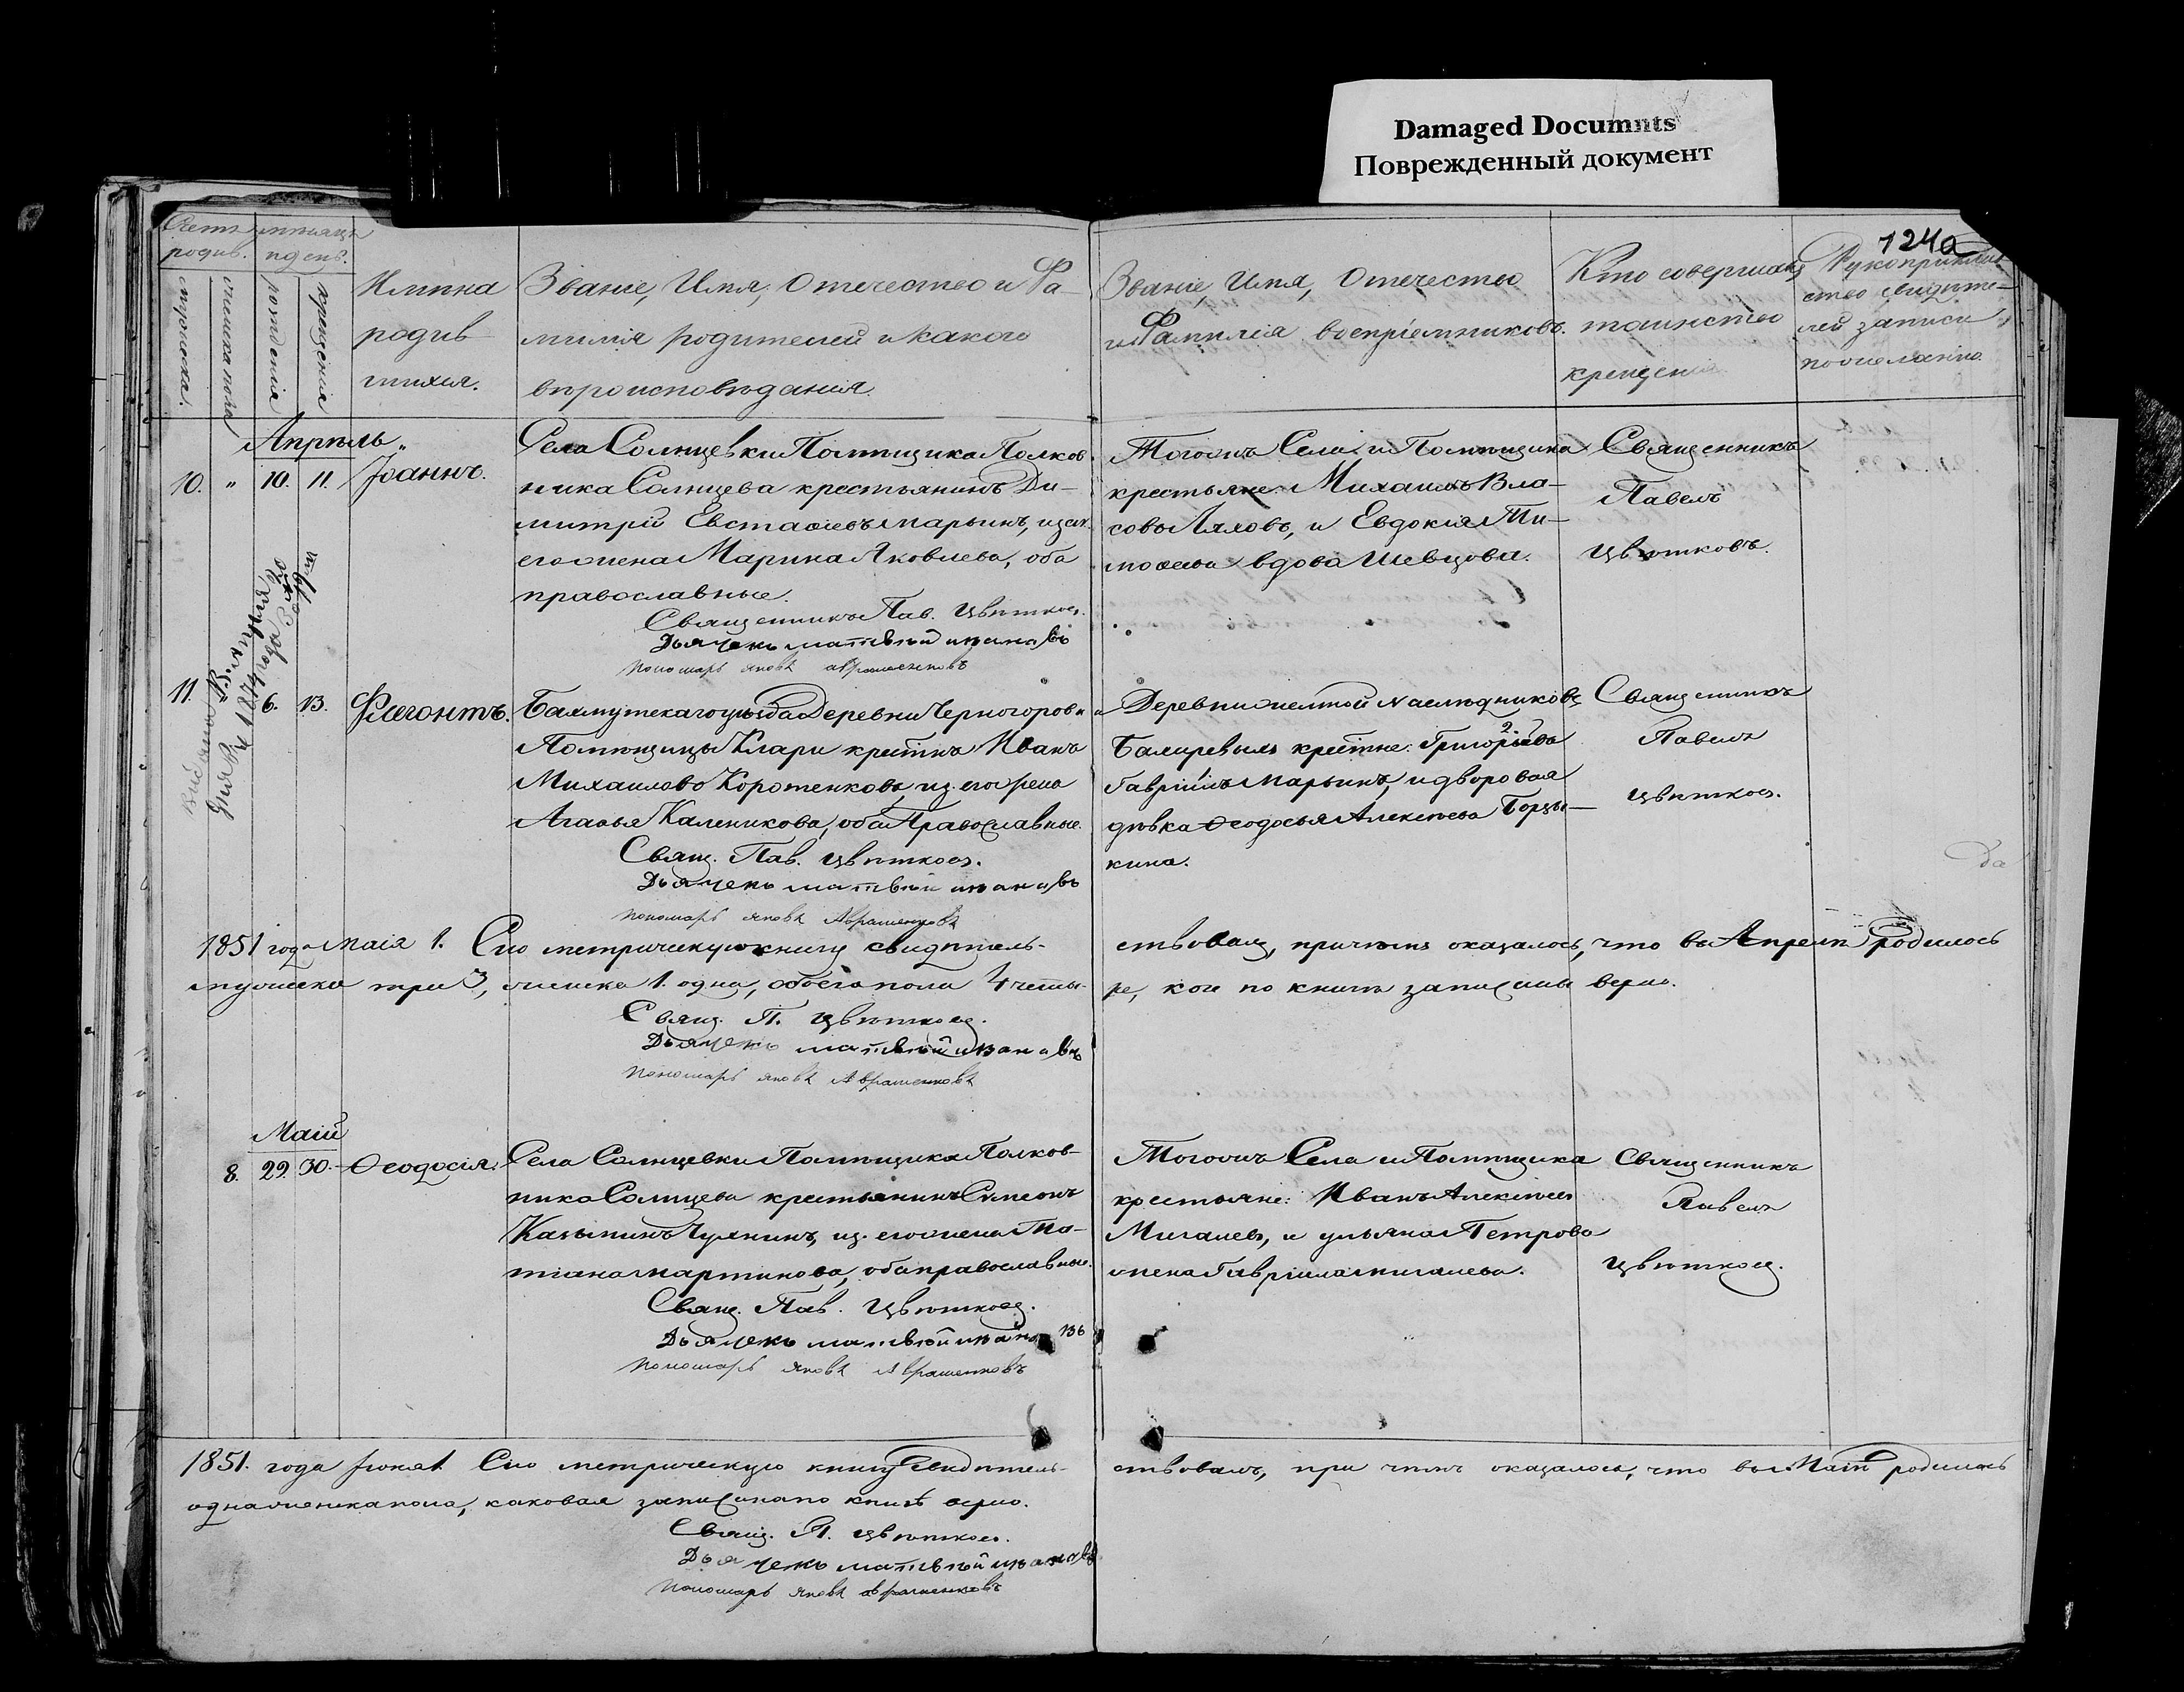 Damaged Documnts
Поврежденный документ
124
Счетъ родив.
мѣсяцъ и день.
мужеска.
женска пола
рожденія
крещенія
Имена
родив-
шихся.
Званіе, Имя, Отечество и Фа-
милія родителей и какого
вѣроисповѣданія.
Званіе, Имя, Отечество
и Фамилія воспріемниковъ.
Кто совершалъ
таинство
крещенія
Рукоприклад
ство свидѣте-
лей записи
по желанію
Апрѣль
10. " 10. 11. Іоаннъ.
Села Солнцевки Помѣщика Полков
ника Солнцева крестьянинъ Ди-
митрій Евстафіевъ Марьинъ, и зак.
его жена Марина Яковлева, оба
православные.
Священникъ Пав. Цвѣтковъ.
Дьячекъ матвѣй ивановъ
Пономарь яковъ авраменковъ
Тогожъ Села и Помѣщика
крестьяне: Михаилъ Вла-
совъ Ляховъ, и Евдокія Ти-
мофеева вдова Шевцова.
Священникъ
Павелъ
Цвѣтковъ.
11. 6. 13. Флегонтъ.
1874 года
Бахмутскаго уѣзда Деревни Черногоровки
Помѣщицы Клари крестнъ Иванъ
Михаиловъ Коротенковъ, из. его жена
Агафья Каленикова, оба Православные.
Свящ. Пав. Цвѣтковъ.
Дьячекъ матвѣй ивановъ
Пономарь яковъ Авраменковъ
Деревни желтой Наслѣдниковъ
крестне: Григоріевъ
Гавріилъ Марьинъ, и дворовая
дѣвка Феодосья Алексѣева Борзы-
кина.
Священникъ
Павелъ
Цвѣтковъ.
да
1851 года маія 1. Сію метрическую книгу свидѣтель-
ствовалъ, причемъ оказалось, что въ Апрелѣ родилось
мужеска три 3, женска 1. одна, обоего пола 4 четы-
ре, кои по книгѣ записаны верно.
Свящ. П. Цвѣтковъ.
Дьячекъ матвѣй ивановъ
Пономарь яковъ Авраменковъ
Маій
8. 29. 30. Феодосія.
Села Солнцевки Помѣщика Полков-
ника Солнцева крестьянинъ Симеонъ
Казьминъ Чулнинъ, из. его жена Та-
тіана Мартинова, оба православные.
Свящ. Пав. Цвѣтковъ.
Дьячекъ матвѣй ивановъ
Пономарь яковъ Авраменковъ
Тогожъ Села и Помѣщика
крестьяне: Иванъ Алексѣевъ
Мигалевъ, и ульяна Петрова
жена Гавріила Мигалева.
Священникъ
Павелъ
Цвѣтковъ.
1851. года Іюня 1. Сію метрическую книгу свидѣтель-
ствовалъ, при чемъ оказалось, что въ Маіи родилась
одна женска пола, каковая записана по книгѣ верно.
Свящ. П. Цвѣтковъ.
Дьячекъ матвѣй ивановъ
Пономарь яковъ авраменковъ